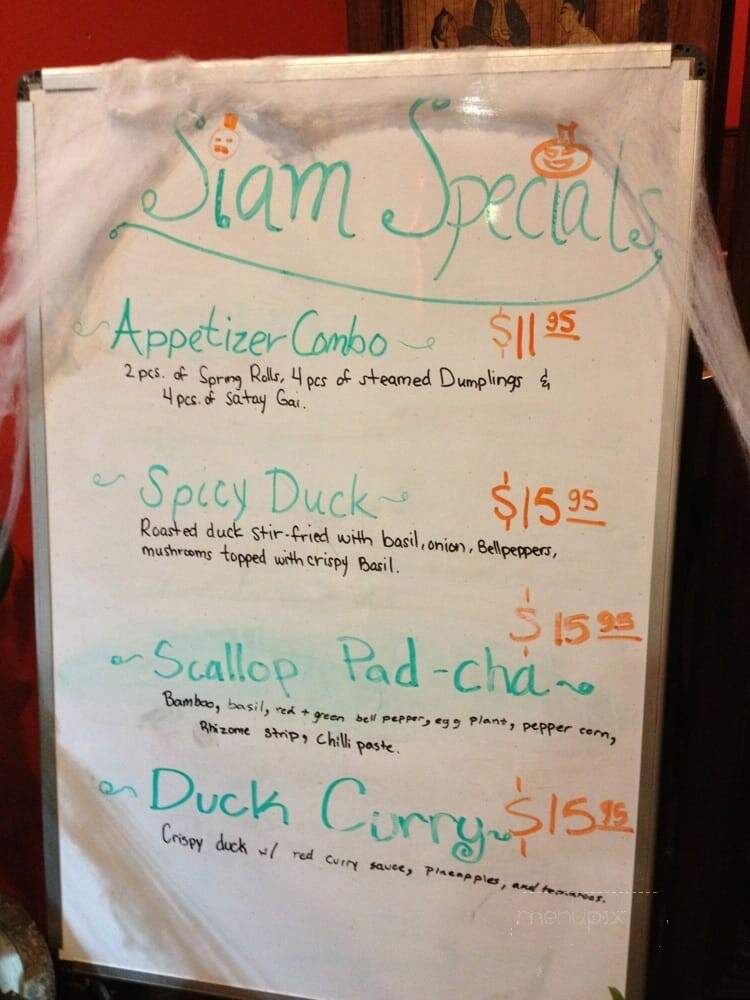 Siam Specials
Appetizer Combo $11 95
2 pcs. of Spring Rolls, 4 pcs of steamed Dumplings &
4 pcs. of Satay Gai.
Spicy Duck $15 95
Roasted duck stir-fried with basil, onion, Bellpeppers,
mushrooms topped with crispy Basil.
$15 95
Scallop Pad-cha
Bamboo, basil, red + green bell pepper, egg plant, pepper corn,
Rhizome strip, Chilli paste.
Duck Curry $15 95
Crispy duck w/ red curry sauce, Pineapples, and tomatoes.
menupix